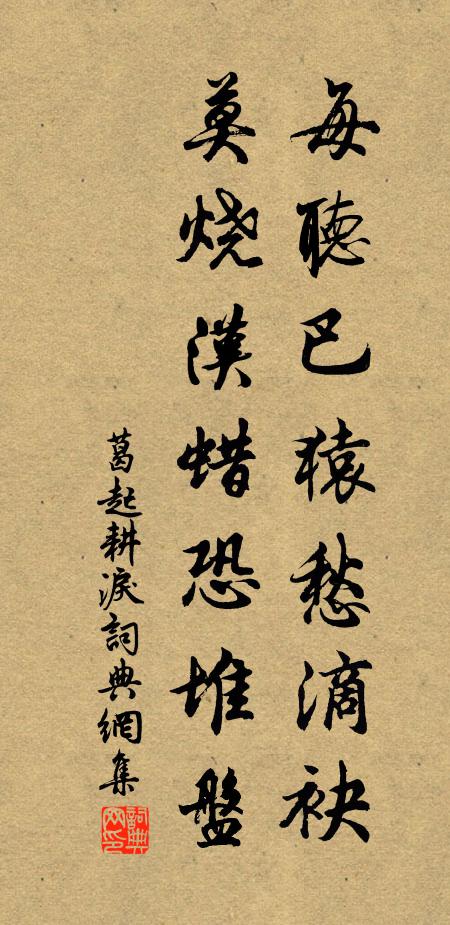 每聽巴猿愁滴袂
莫烧漢蜡恐堆盤
葛起耕淚詞典網集
詞典网印